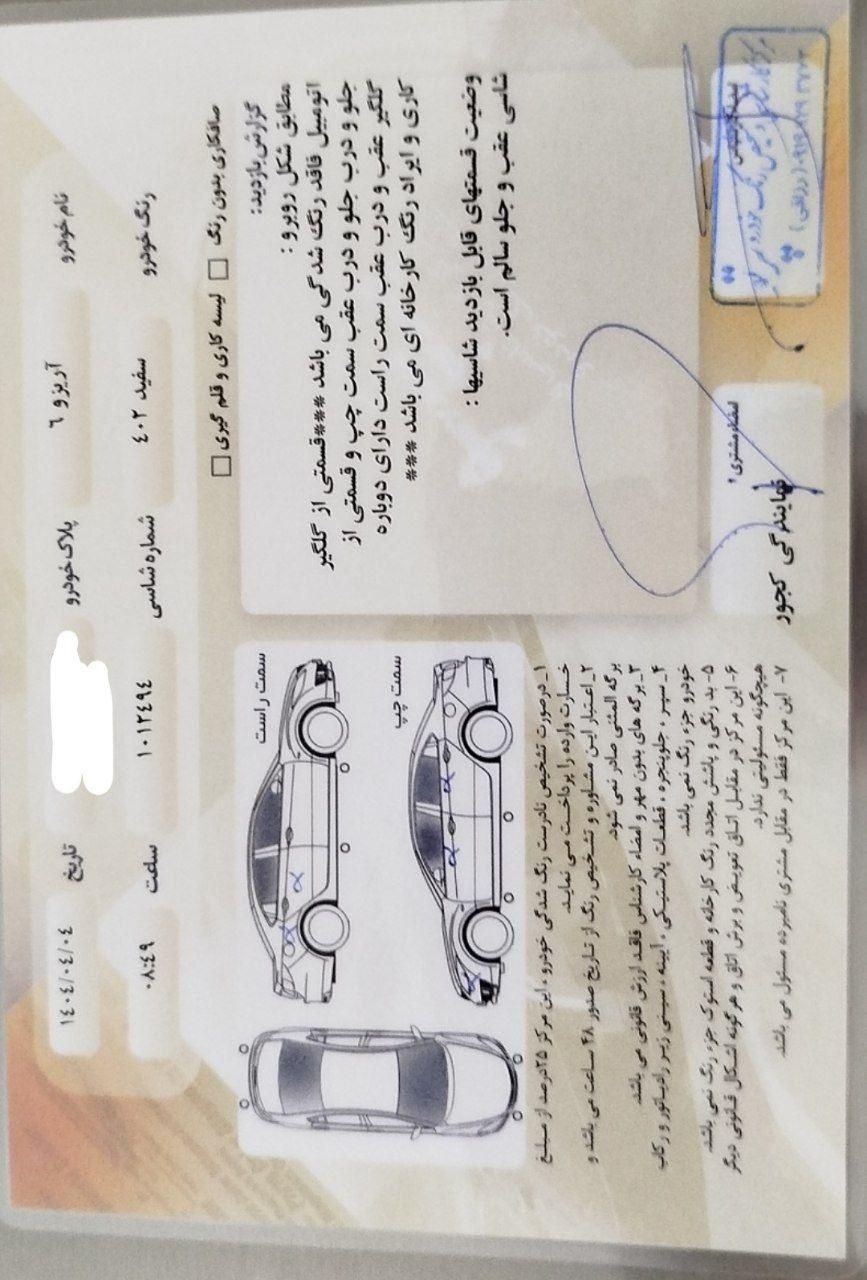 نام خودرو آریزو ٦ پلاک خودرو تاریخ ١٤٠٤/٠٤/٠٤
رنگ خودرو سفید ٤٠٢ شماره شاسی ١٠١٢٤٩٤ ساعت ٠٨:٤٩
صافکاری بدون رنگ لیسه کاری و قلم گیری
گزارش بازدید:
مطابق شکل روبرو :
اتومبیل فاقد رنگ شدگی می باشد ***قسمتی از گلگیر
جلو و درب جلو و درب عقب سمت چپ و قسمتی از
گلگیر عقب و درب عقب سمت راست دارای دوباره
کاری و ایراد رنگ کارخانه ای می باشد ***
وضعیت قسمتهای قابل بازدید شاسیها :
شاسی عقب و جلو سالم است.
امضاء مشتری :
نمایندگی کجور
سمت راست
سمت چپ
١_درصورت تشخیص نادرست رنگ شدگی خودرو ، این مرکز ٢٥درصد از مبلغ
خسارت وارده را پرداخت می نماید.
٢_اعتبار این مشاوره و تشخیص رنگ از تاریخ صدور ٤٨ ساعت می باشد و
برگه المثنی صادر نمی شود.
٣_برگه های بدون مهر و امضاء کارشناس فاقد ارزش قانونی می باشد.
٤_ سپر ، جلوپنجره ، قطعات پلاستیکی ، آیینه ، سینی زیر رادیاتور و رکاب
خودرو جزء رنگ نمی باشد.
٥- بد رنگی و پاشش مجدد رنگ کارخانه و قطعه استوک جزء رنگ نمی باشد.
٦- این مرکز در مقابل اتاق تعویض و برش اتاق و هرگونه اشکال قانونی دیگر
هیچگونه مسئولیتی ندارد.
٧- این مرکز فقط در مقابل مشتری نامبرده مسئول می باشد.